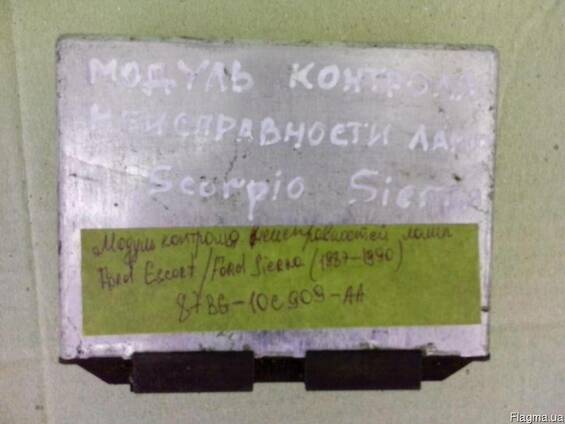 МОДУЛЬ КОНТРОЛЯ
НЕИСПРАВНОСТИ ЛАМП
Scorpio Sierra
Модуль контроля неисправностей ламп
Ford Escort/Ford Sierra (1987-1990)
87BG-10C909-AA
Flagma.ua